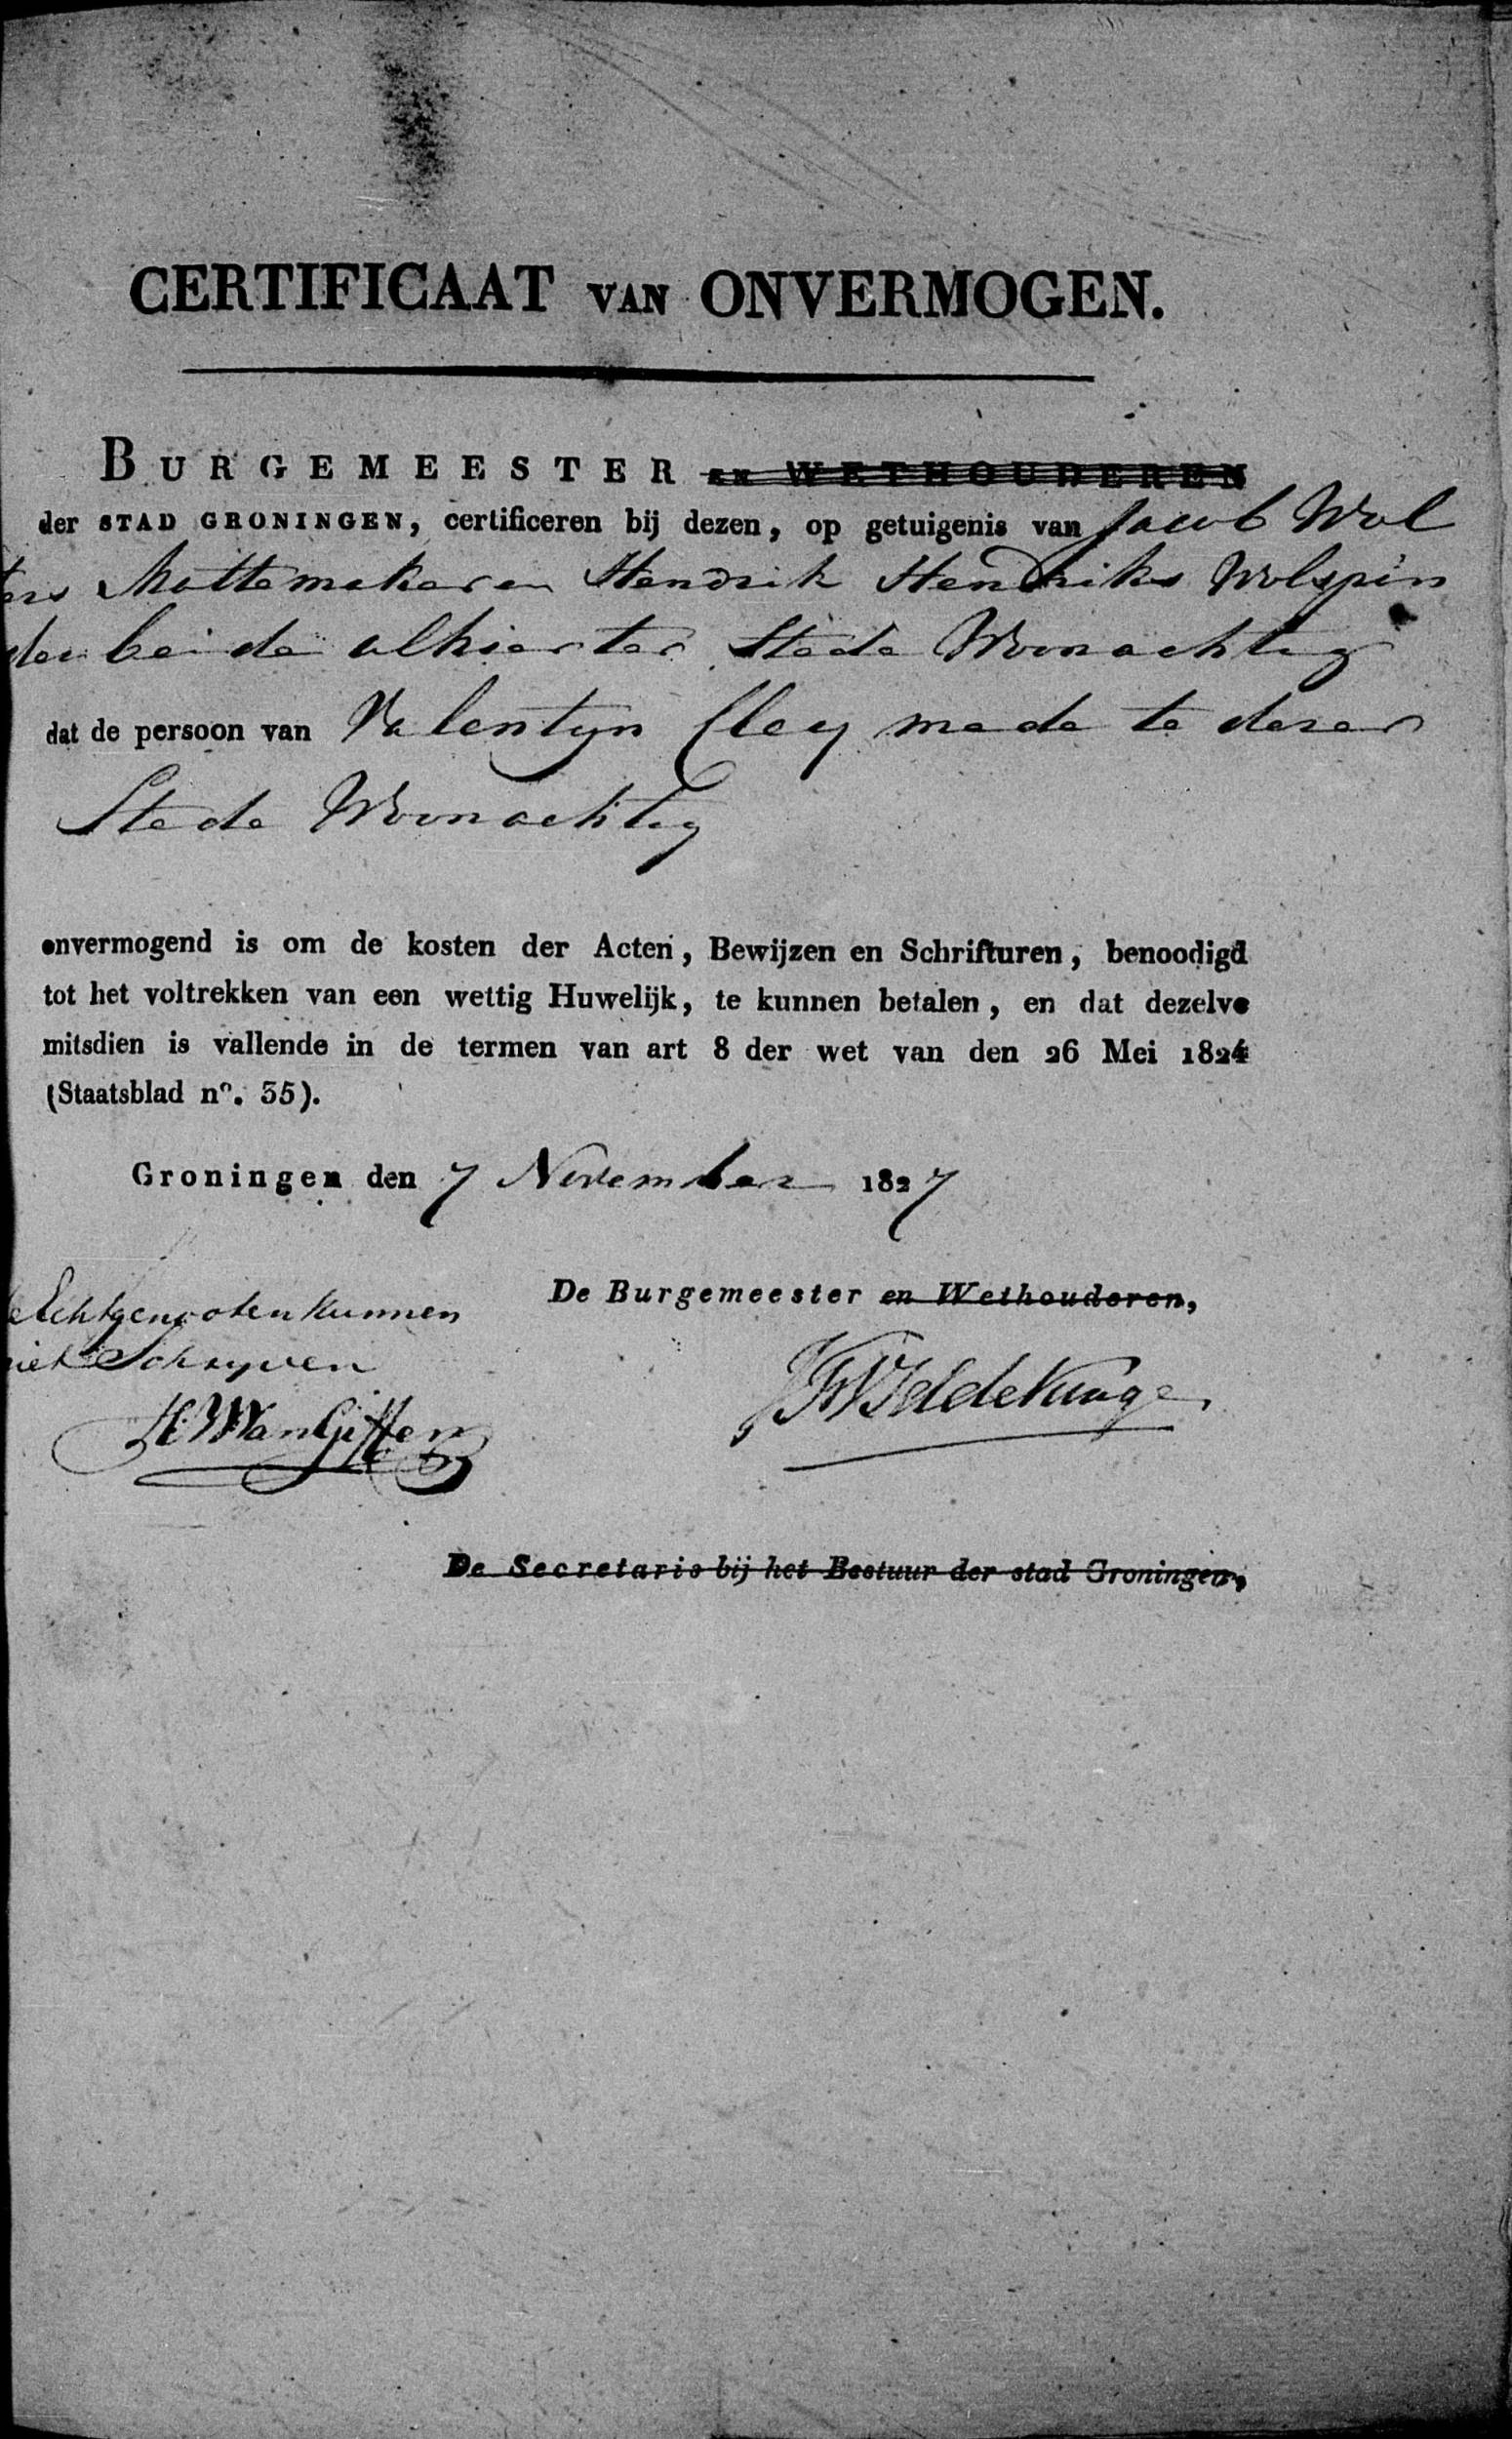 CERTIFICAAT VAN ONVERMOGEN.
BURGEMEESTER EN WETHOUDEREN
der STAD GRONINGEN, certificeren bij dezen, op getuigenis van Jacob Wol
ters Mattemaker en Hendrik Hendriks Wolspin
der beide alhier ter Stede Woonachtig
dat de persoon van Valentyn Cley mede te dezer
Stede Woonachtig
onvermogend is om de kosten der Acten, Bewijzen en Schrifturen, benoodigd
tot het voltrekken van een wettig Huwelijk, te kunnen betalen, en dat dezelve
mitsdien is vallende in de termen van art 8 der wet van den 26 Mei 1824
(Staatsblad nº. 35).
Groningen den 7 November 1827
De Burgemeester en Wethouderen,
Echtgenooten kunnen
niet Schryven
H: W Van Giffen
De Secretaris bij het Bestuur der stad Groningen,